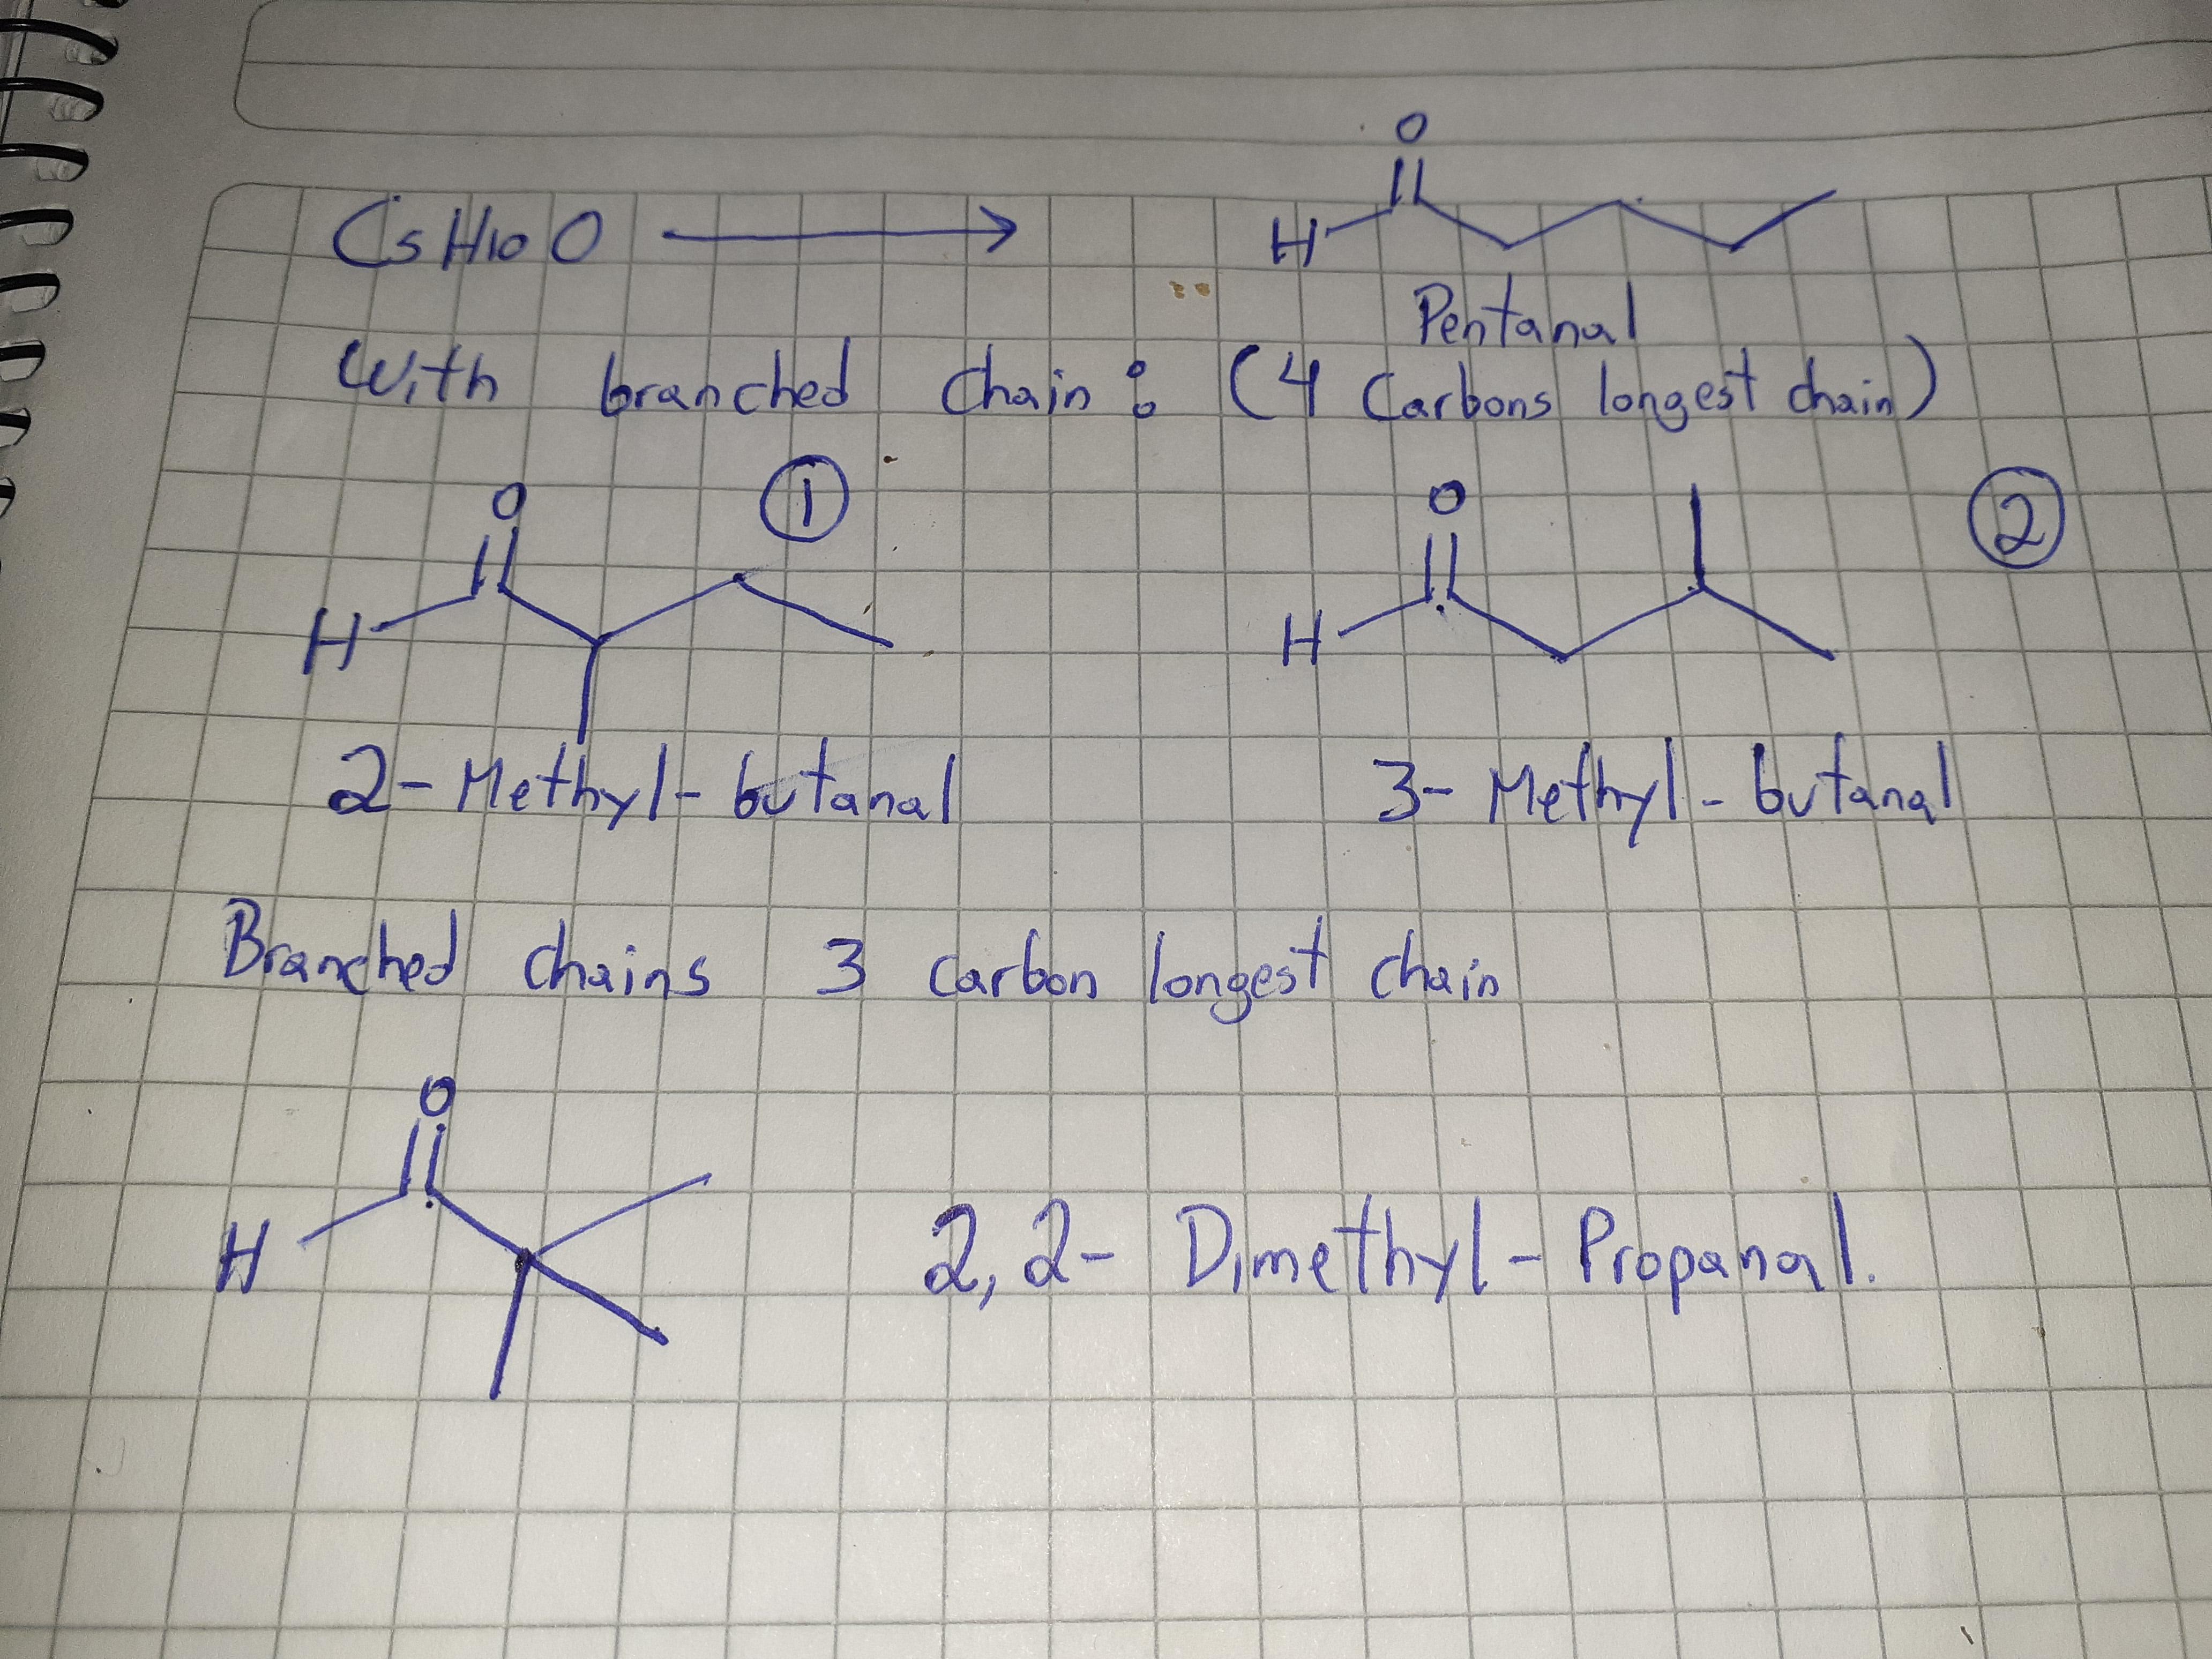 O
C5H10O → H
Pentanal
With branched chain: (4 Carbons longest chain)
O ① O ②
H H
2-Methyl-butanal 3-Methyl-butanal
Branched chains 3 carbon longest chain
O
H 2,2-Dimethyl-Propanal.